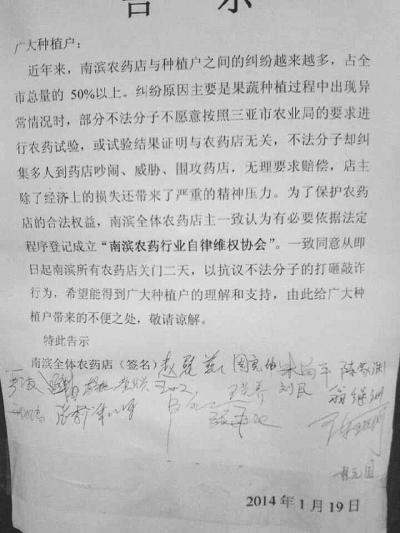 告 示
广大种植户：
近年来，南滨农药店与种植户之间的纠纷越来越多，占全
市总量的 50%以上。纠纷原因主要是果蔬种植过程中出现异
常情况时，部分不法分子不愿意按照三亚市农业局的要求进
行农药试验，或试验结果证明与农药店无关，不法分子却纠
集多人到药店吵闹、威胁、围攻药店，无理要求赔偿，店主
除了经济上的损失还带来了严重的精神压力。为了保护农药
店的合法权益，南滨全体农药店主一致认为有必要依据法定
程序登记成立“南滨农药行业自律维权协会”。一致同意从即
日起南滨所有农药店关门二天，以抗议不法分子的打砸敲诈
行为，希望能得到广大种植户的理解和支持，由此给广大种
植户带来的不便之处，敬请谅解。
特此告示
南滨全体农药店（签名）
刘民
2014 年 1 月 19 日